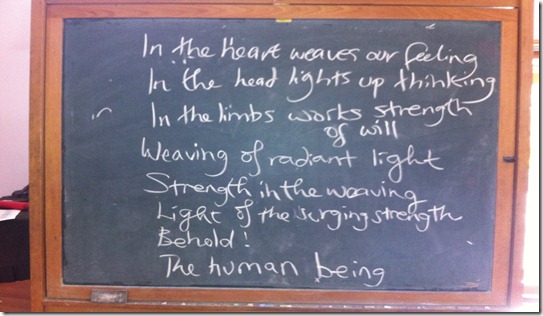 In the heart weaves our feeling
In the head lights up thinking
In the limbs works strength
of will
Weaving of radiant light
Strength in the weaving
Light of the surging strength
Behold!
The human being